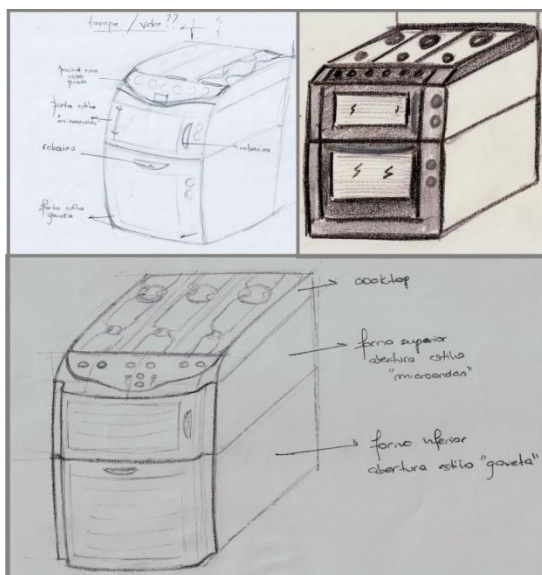 tampa / vidro ??
porta estilo
"microondas"
rebaixo
rebaixo
porta estilo
gaveta
cooktop
forno superior
abertura estilo
"microondas"
forno inferior
abertura estilo "gaveta"